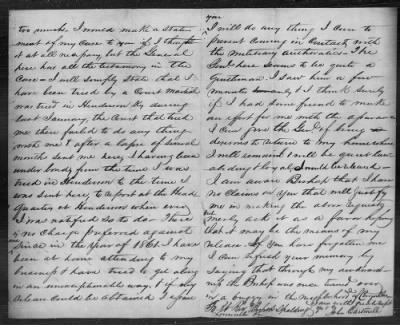 too much. I would make a state
ment of my case to you if I thought
it at all necessary but the General
here has all the testimony in the
Case I will simply state that I
have been tried by a Court Martial
was tried in Henderson Ky during
last January. The Court that tried
me then failed to do any thing
with me & after a lapse of several
months sent me here, I having been
under bond from the time I was
tried in Henderson to the time I
was sent here to report at the Head
Quarters at Henderson when ever
I was notified so to do There
is no charge preferred against
me since in the year of 1861 I have
been at home attending to my
business & have tried to get along
in an unexceptionable way. & if my
release could be obtained I assure
you
I will do any thing I can to
prevent coming in contact with
the military authorities The
Genl here seems to be quite a
gentleman I saw him a few
minutes only & I think surely
if I had some friend to make
an effort for me with the assurance
I can give the Genl of being
desirous to return to my home where
I will remain & will be a quiet law
abiding loyal
I am aware that I have
no claims on you that will justify
me in making the above request
merely ask it as a favor hoping
that it may be the means of my
release If you have forgotten me
I can refresh your memory by
saying that through my awkward-
ness the Bishop was once turned over
in a buggy in the neighborhood of